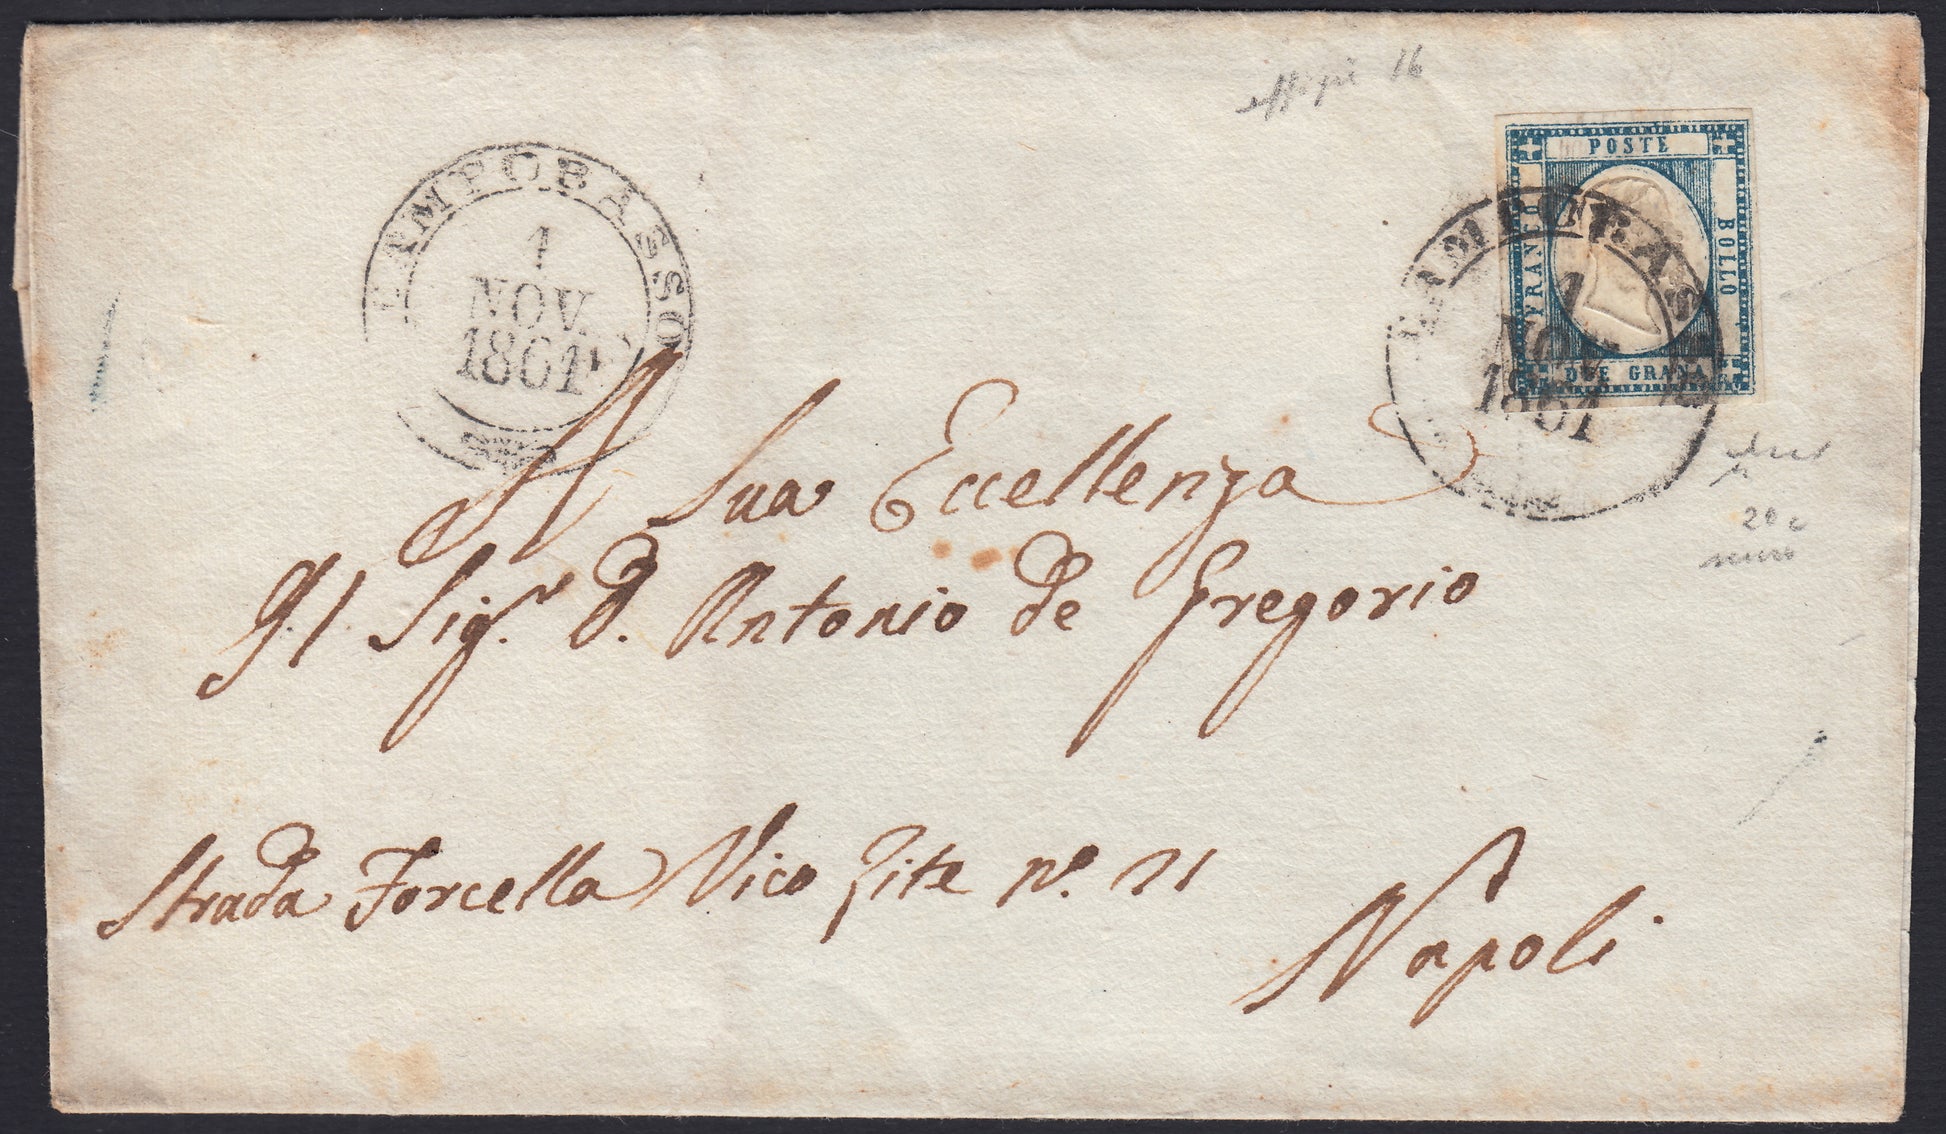 CAMPOBASSO
1
NOV.
1861
POSTE
FRANCO
BOLLO
DUE GRANA
CAMPOBASSO
1
NOV.
1861
16
A Sua Eccellenza
Il Sig.r D. Antonio de Gregorio
20 c
Strada Forcella Vico Zite n.o 21
Napoli